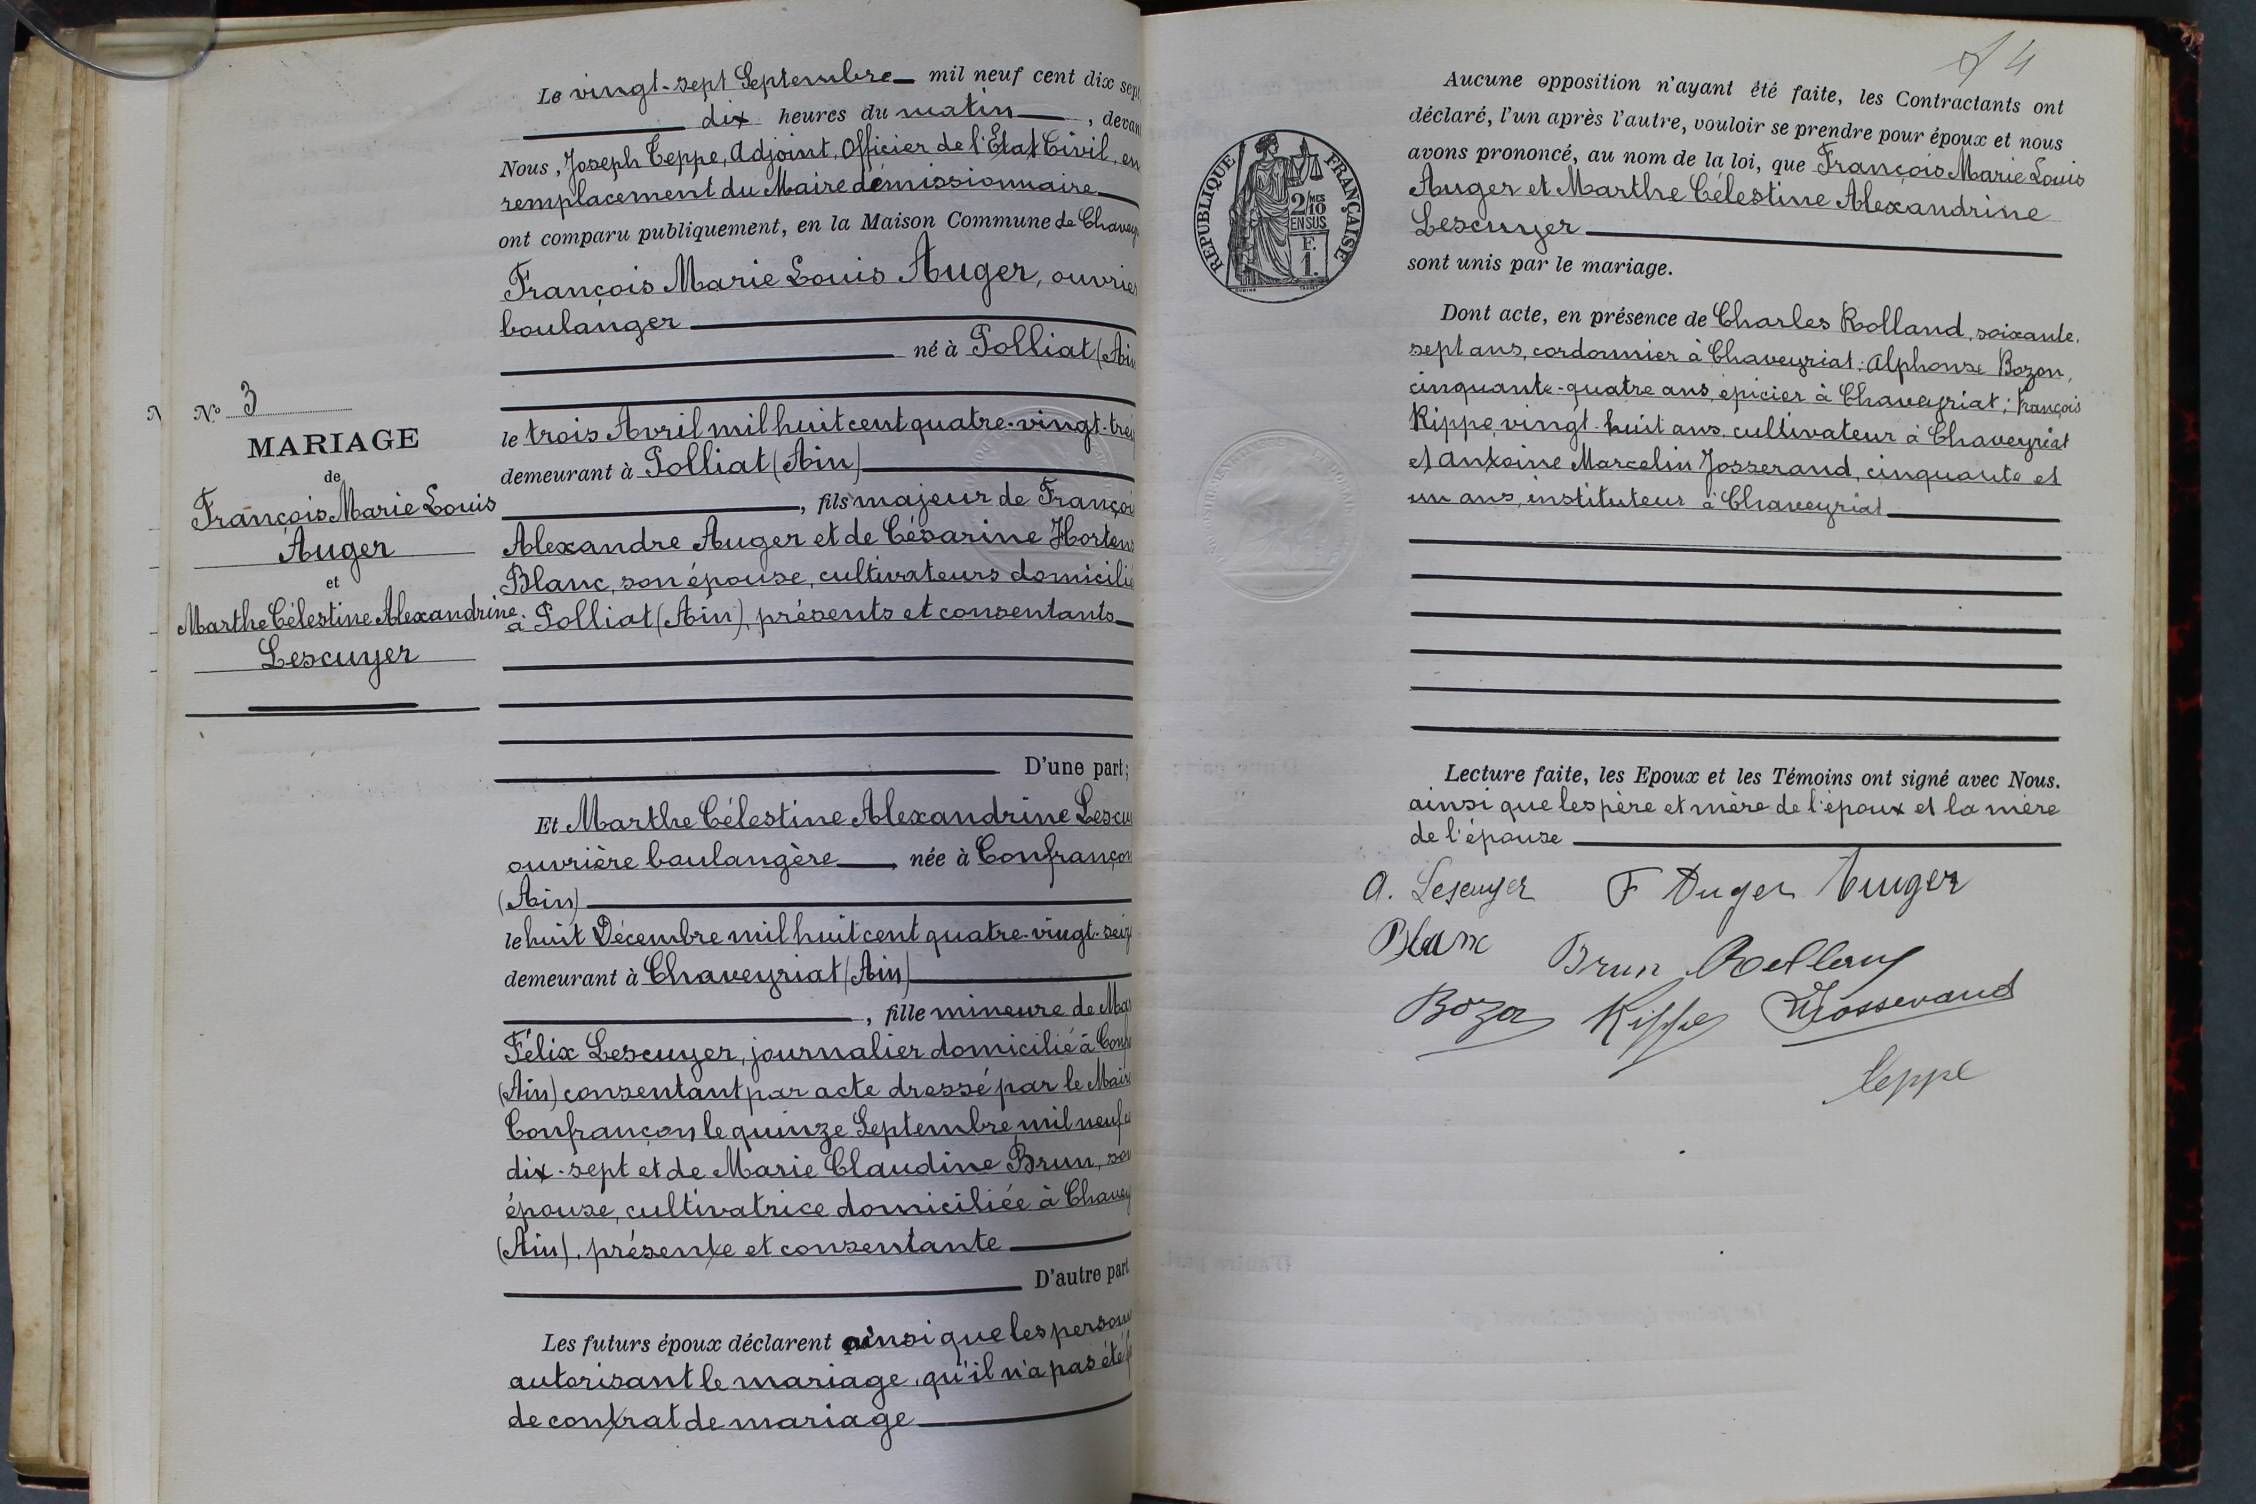 Le vingt-sept Septembre mil neuf cent dix sept
dix heures du matin, devan
Nous, Joseph Teppe, Adjoint, Officier de l'Etat Civil, en
remplacement du Maire démissionnaire
ont comparu publiquement, en la Maison Commune de Chavey
François Marie Louis Auger, ouvrier
boulanger
né à Polliat (Ain
le trois Avril mil huit cent quatre-vingt-trei
demeurant à Polliat (Ain)
, fils majeur de Françoi
Alexandre Auger et de Césarine Hortens
Blanc, son épouse, cultivateurs domicilié
à Polliat (Ain), présents et consentants
D'une part;
Et Marthe Célestine Alexandrine Lescu
ouvrière boulangère, née à Confrançon
(Ain)
le huit Décembre mil huit cent quatre-vingt-seiz
demeurant à Chaveyriat (Ain)
, fille mineure de
Félix Lescuyer, journalier domicilié à Conf
(Ain) consentant par acte dressé par le Maire
Confrançon le quinze Septembre mil neuf c
dix-sept et de Marie Claudine Brun, son
épouse, cultivatrice domiciliée à Chavey
(Ain), présente et consentante
D'autre part
Les futurs époux déclarent ainsi que les person
autorisant le mariage, qu'il n'a pas été f
de contrat de mariage
No 3
MARIAGE
de
François Marie Louis
Auger
et
Marthe Célestine Alexandrine
Lescuyer
4
RÉPUBLIQUE FRANÇAISE
2/10 MES
EN SUS
F.
1.
Aucune opposition n'ayant été faite, les Contractants ont
déclaré, l'un après l'autre, vouloir se prendre pour époux et nous
avons prononcé, au nom de la loi, que François Marie Louis
Auger et Marthe Célestine Alexandrine
Lescuyer
sont unis par le mariage.
Dont acte, en présence de Charles Rolland, soixante-
sept ans, cordonnier à Chaveyriat; Alphonse Bozon,
cinquante-quatre ans, épicier à Chaveyriat; François
Rippe, vingt-huit ans, cultivateur à Chaveyriat
et Antoine Marcelin Josserand, cinquante et
un ans, instituteur à Chaveyriat
Lecture faite, les Epoux et les Témoins ont signé avec Nous.
ainsi que les père et mère de l'époux et la mère
de l'épouse
a. Lescuyer F Auger Auger
Blanc Brun Rolland
Bozon Rippe Josserand
Teppe